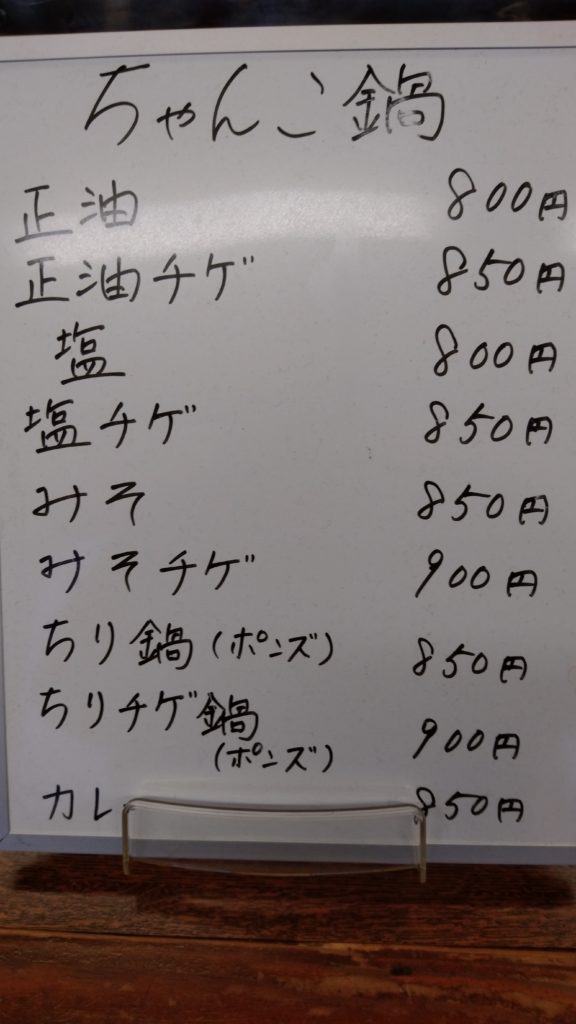 ちゃんこ鍋
正油 800円
正油チゲ 850円
塩 800円
塩チゲ 850円
みそ 850円
みそチゲ 900円
ちり鍋(ポンズ) 850円
ちりチゲ鍋 900円
(ポンズ)
カレ 850円